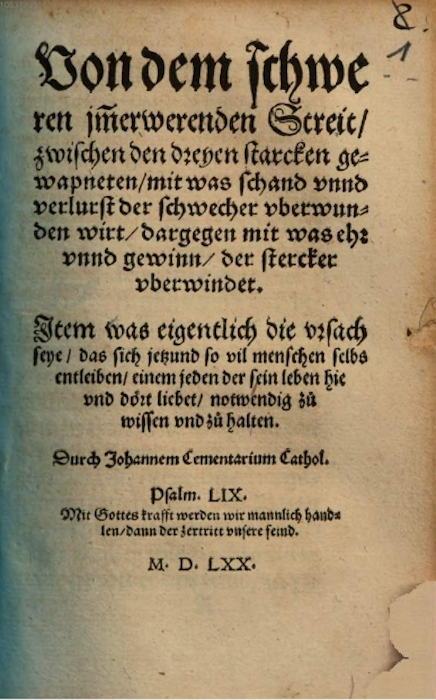 8.
1
Von dem schwe
ren jm̃erwerenden Streit/
zwischen den dreyen starcken ge-
wapneten/mit was schand vnnd
verlurst der schwecher vberwun-
den wirt/dargegen mit was ehr
vnnd gewinn/ der stercker
vberwindet.
Item was eigentlich die vrsach
seye/ das sich jetzund so vil menschen selbs
entleiben/ einem jeden der sein leben hie
vnd dört liebet/ notwendig zů
wissen vnd zů halten.
Durch Johannem Cementarium Cathol.
Psalm. LIX.
Mit Gottes krafft werden wir mannlich hand-
len/dann der zertritt vnsere feind.
M. D. LXX.